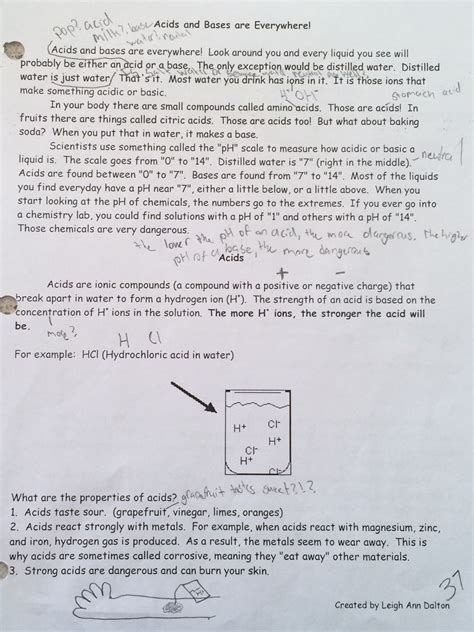 pop? acid
milk? base
Acids and Bases are Everywhere!
Acids and bases are everywhere! Look around you and every liquid you see will
probably be either an acid or a base. The only exception would be distilled water. Distilled
water is just water! That's it. Most water you drink has ions in it. It is those ions that
make something acidic or basic.
H⁺ OH⁻
stomach acid
In your body there are small compounds called amino acids. Those are acids! In
fruits there are things called citric acids. Those are acids too! But what about baking
soda? When you put that in water, it makes a base.
Scientists use something called the "pH" scale to measure how acidic or basic a
liquid is. The scale goes from "0" to "14". Distilled water is "7" (right in the middle). - neutral
Acids are found between "0" to "7". Bases are found from "7" to "14". Most of the liquids
you find everyday have a pH near "7", either a little below, or a little above. When you
start looking at the pH of chemicals, the numbers go to the extremes. If you ever go into
a chemistry lab, you could find solutions with a pH of "1" and others with a pH of "14".
Those chemicals are very dangerous.
the lower the pH of an acid, the more dangerous. the higher
pH of a base, the more dangerous
Acids
+ -
Acids are ionic compounds (a compound with a positive or negative charge) that
break apart in water to form a hydrogen ion (H⁺). The strength of an acid is based on the
concentration of H⁺ ions in the solution. The more H⁺ ions, the stronger the acid will
be.
more?
H Cl
For example: HCl (Hydrochloric acid in water)
H+ Cl-
H+
Cl-
H+
Cl-
What are the properties of acids? grapefruit tastes sweet?!?
1. Acids taste sour. (grapefruit, vinegar, limes, oranges)
2. Acids react strongly with metals. For example, when acids react with magnesium, zinc,
and iron, hydrogen gas is produced. As a result, the metals seem to wear away. This is
why acids are sometimes called corrosive, meaning they "eat away" other materials.
3. Strong acids are dangerous and can burn your skin.
37
Created by Leigh Ann Dalton